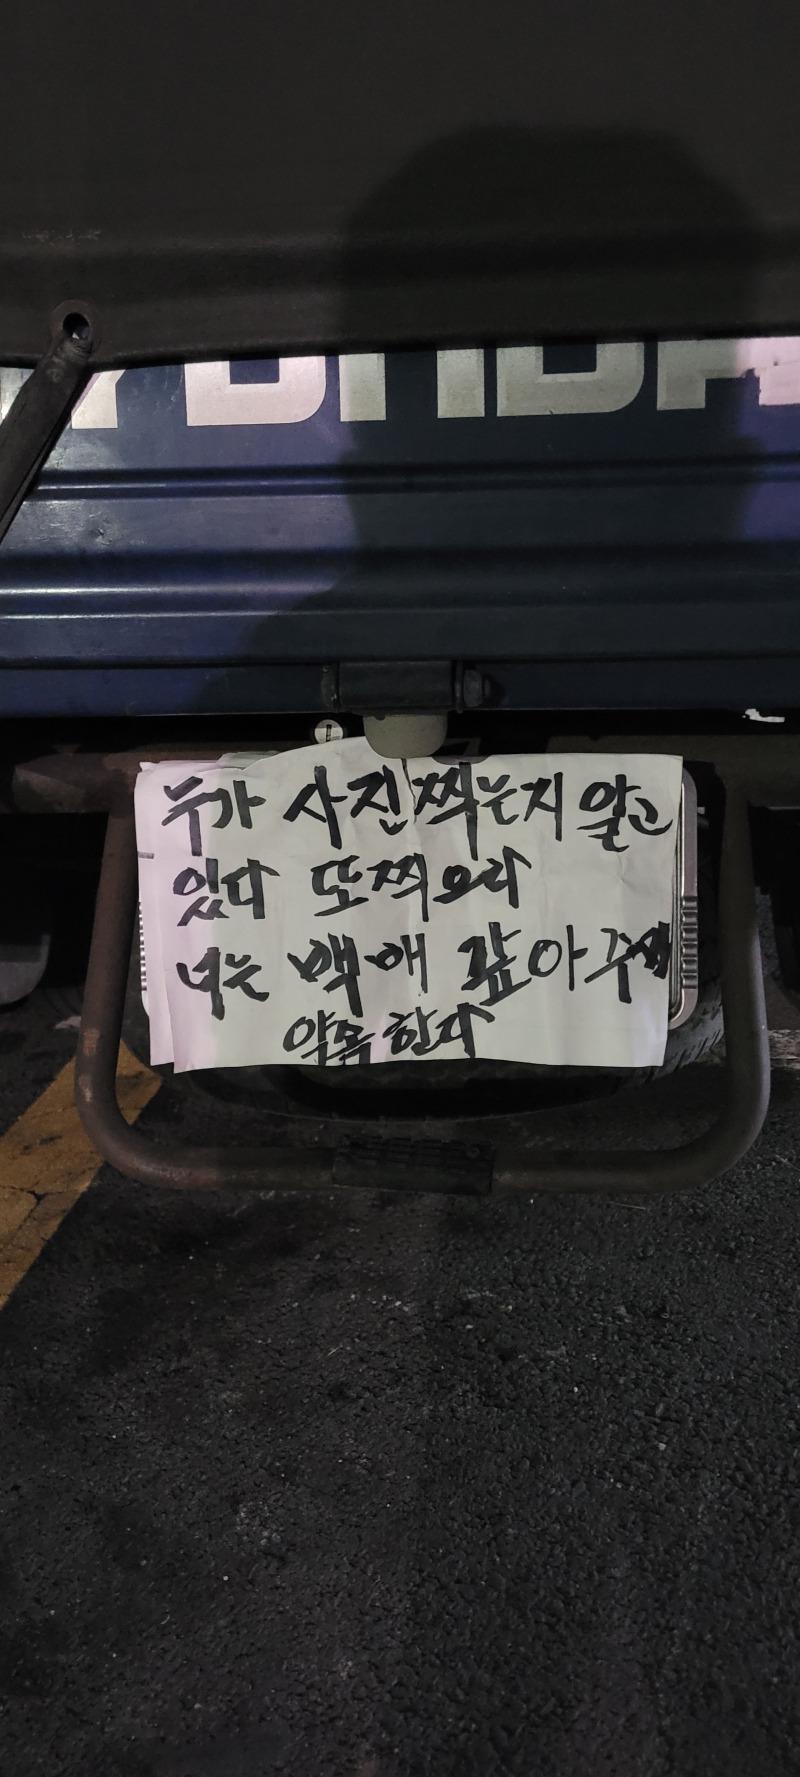 HYUNDAI
누가 사진 찍는지 알고
있다 또 찍으라
너는 백애 갚아주께
약속한다